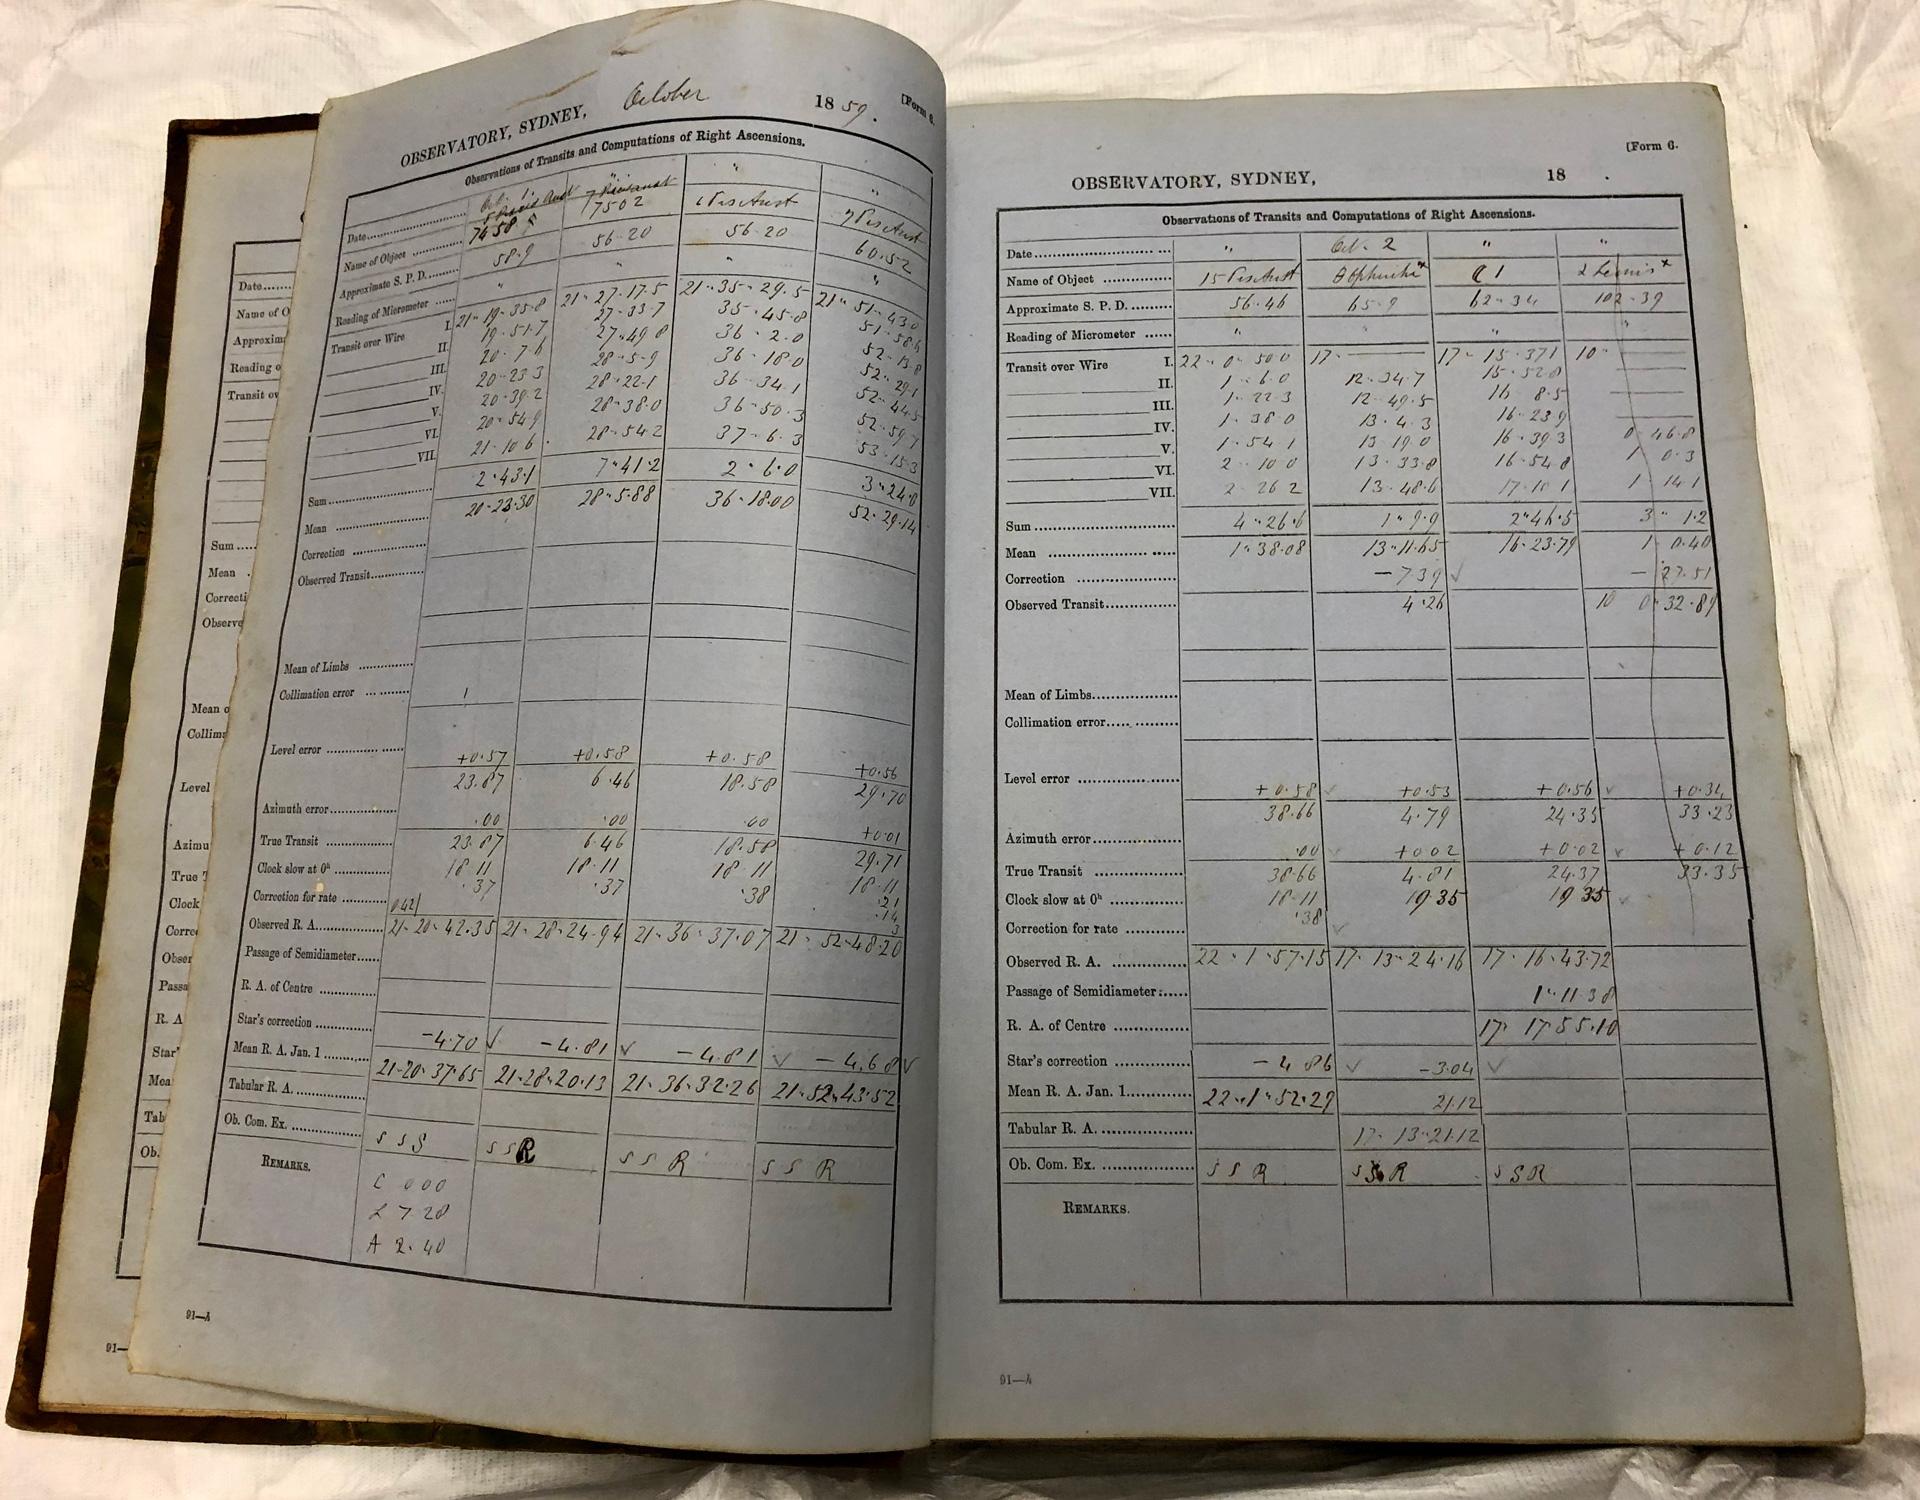 OBSERVATORY, SYDNEY, October 1859. [Form 6.
Observations of Transits and Computations of Right Ascensions.
Date Oct. 1 " " "
Name of Object 7458 7502 ι Pisc Aust η Pisc Aust
Approximate S. P. D. 58·9 56·20 56·20 60·52
Reading of Micrometer " " " "
Transit over Wire I. 21 19·35·8 21·27·17·5 21·35·29·5 21·51·43·0
II. 19·51·7 27·33·7 35·45·8 51·58·6
III. 20·7·6 27·49·8 36·2·0 52·13·8
IV. 20·23·3 28·5·9 36·18·0 52·29·1
V. 20·39·2 28·22·1 36·34·1 52·44·5
VI. 20·54·9 28·38·0 36·50·3 52·59·7
VII. 21·10·6 28·54·2 37·6·3 53·15·3
Sum 2·43·1 7·41·2 2·6·0 3·24·0
Mean 20·23·30 28·5·88 36·18·00 52·29·14
Correction
Observed Transit
Mean of Limbs
Collimation error
Level error +0·57 +0·58 +0·58 +0·56
23·87 6·46 18·58 29·70
Azimuth error ·00 ·00 ·00 +0·01
True Transit 23·87 6·46 18·58 29·71
Clock slow at 0ʰ 18·11 18·11 18·11 18·11
Correction for rate ·37 ·37 ·38
Observed R. A. 21·20·42·35 21·28·24·94 21·36·37·07 21·52·48·20
Passage of Semidiameter
R. A. of Centre
Star's correction −4·70 ✓ −4·81 ✓ −4·81 ✓ −4·68 ✓
Mean R. A. Jan. 1 21·20·37·65 21·28·20·13 21·36·32·26 21·52·43·52
Tabular R. A.
Ob. Com. Ex. S S S S S R S S R S S R
REMARKS.
C 0·00
L 7·28
A 2·40
91—A
OBSERVATORY, SYDNEY, 18 . [Form 6.
Observations of Transits and Computations of Right Ascensions.
Date " Oct. 2 " "
Name of Object 15 Pisc Aust θ Ophiuchi* 1 α Leonis*
Approximate S. P. D. 56·46 65·9 62·34 102·39
Reading of Micrometer " " " "
Transit over Wire I. 22·0·50·0 17· 17·15·37·1 10·
II. 1·6·0 12·34·7 15·52·8
III. 1·22·3 12·49·5 16·8·5
IV. 1·38·0 13·4·3 16·23·9
V. 1·54·1 13·19·0 16·39·3 0·46·8
VI. 2·10·0 13·33·8 16·54·8 1·0·3
VII. 2·26·2 13·48·6 17·10·1 1·14·1
Sum 4·26·6 1·9·9 2·46·5 3·1·2
Mean 1·38·08 13·11·65 16·23·79 1·0·40
Correction −7·39 ✓ −27·51
Observed Transit 4·26 10 0·32·89
Mean of Limbs
Collimation error
Level error +0·58 ✓ +0·53 +0·56 ✓ +0·34
38·66 4·79 24·35 33·23
Azimuth error ·00 ✓ +0·02 +0·02 ✓ +0·12
True Transit 38·66 4·81 24·37 33·35
Clock slow at 0ʰ 18·11 19·35 19·35 ✓
Correction for rate ·38 ✓
Observed R. A. 22·1·57·15 17·13·24·16 17·16·43·72
Passage of Semidiameter 1·11·38
R. A. of Centre 17·17·55·10
Star's correction −4·86 ✓ −3·04 ✓
Mean R. A. Jan. 1 22·1·52·29 21·12
Tabular R. A. 17·13·21·12
Ob. Com. Ex. S S R S S R S S R
REMARKS.
91—A
Date
Name of O
Approxim
Reading o
Transit ov
Sum
Mean
Correcti
Observe
Mean o
Collim
Level
Azimu
True T
Clock
Corre
Obser
Passa
R. A
Star'
Mea
Tab
Ob.
91—